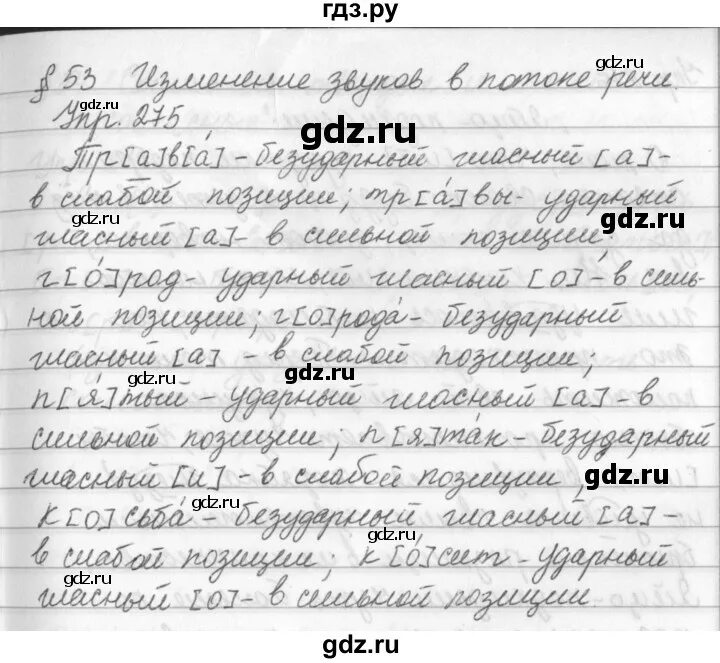 гдз.ру
§ 53 Изменение звуков в потоке речи.
Упр. 275
gdz.ru
Тр[а]в[а́] - безударный гласный [а] -
в слабой позиции; тр[а́]вы - ударный
gdz.ru
gdz.ru
гласный [а] - в сильной позиции;
г[о́]род - ударный гласный [о] - в силь-
ной позиции; г[о]рода́ - безударный
гласный [а] - в слабой позиции;
gdz.ru
п[я́]тый - ударный гласный [а] - в
сильной позиции; п[я]та́к - безударный
гласный [и] - в слабой позиции;
gdz.ru
gdz.ru
к[о]сьба́ - безударный гласный [а] -
gdz.ru
gdz.ru
в слабой позиции; к[о́]сит - ударный
gdz.ru
gdz.ru
гласный [о] - в сильной позиции.
gdz.ru